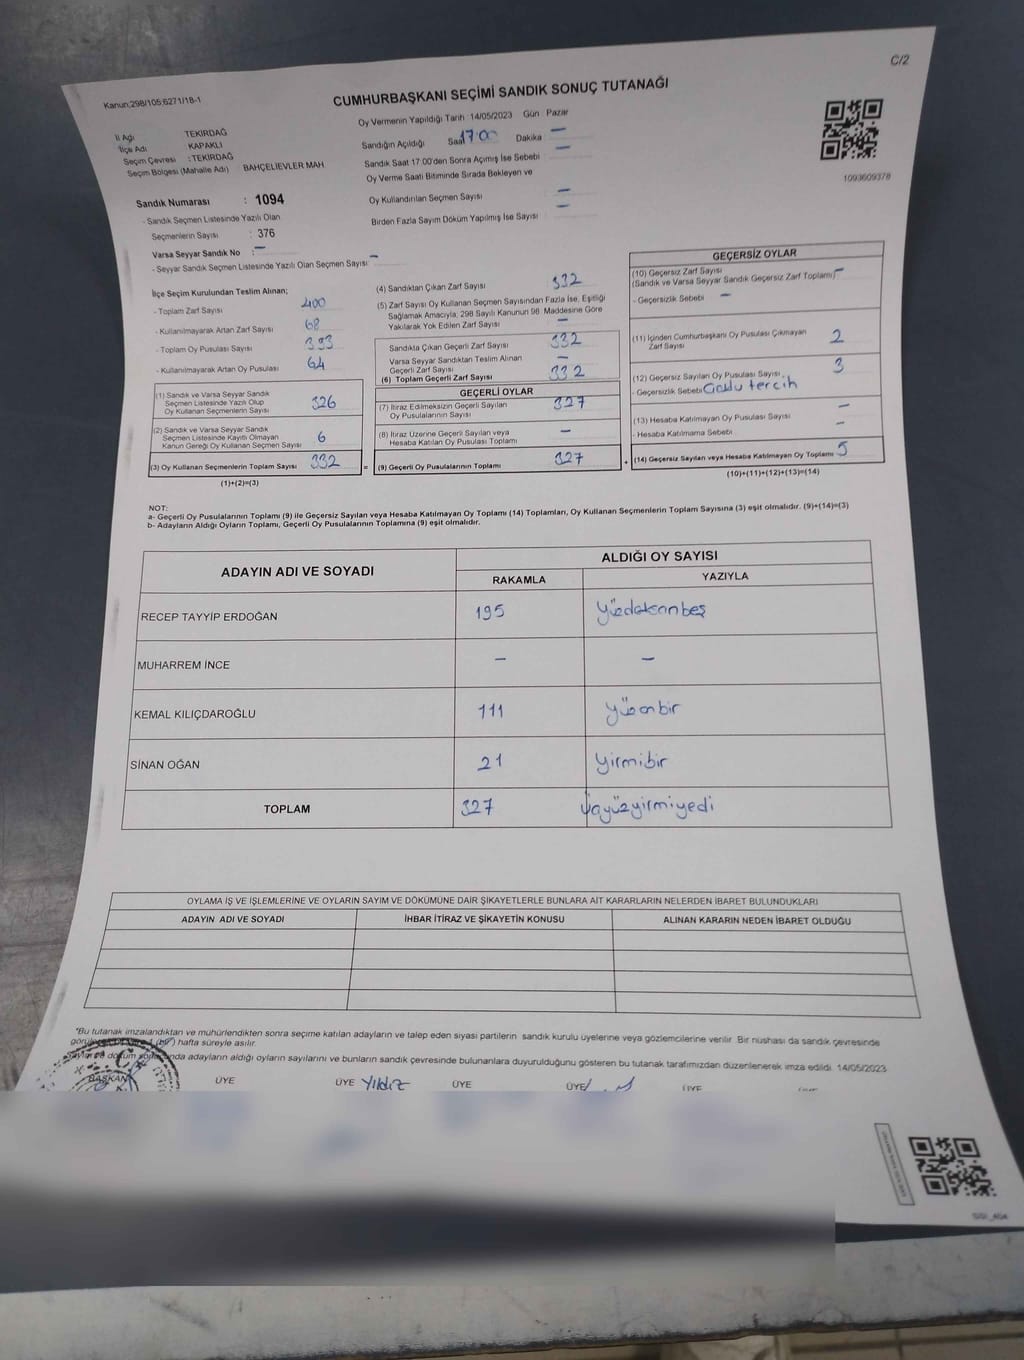 C/2
Kanun;298/105;6271/18-1
CUMHURBAŞKANI SEÇİMİ SANDIK SONUÇ TUTANAĞI
İl Adı TEKIRDAĞ
İlçe Adı KAPAKLI
Seçim Çevresi : TEKIRDAĞ
Seçim Bölgesi (Mahalle Adı) BAHÇELIEVLER MAH.
Sandık Numarası : 1094
- Sandık Seçmen Listesinde Yazılı Olan
Seçmenlerin Sayısı : 376
Varsa Seyyar Sandık No : -
- Seyyar Sandık Seçmen Listesinde Yazılı Olan Seçmen Sayısı: -
Oy Vermenin Yapıldığı Tarih 14/05/2023 Gün Pazar
Sandığın Açıldığı Saat 17:00 Dakika -
Sandık Saat 17.00'den Sonra Açımış İse Sebebi -
Oy Verme Saati Bitiminde Sırada Bekleyen ve
Oy Kullandırılan Seçmen Sayısı -
Birden Fazla Sayım Döküm Yapılmış İse Sayısı -
1093609378
İlçe Seçim Kurulundan Teslim Alınan;
- Toplam Zarf Sayısı 400
- Kullanılmayarak Artan Zarf Sayısı 68
- Toplam Oy Pusulası Sayısı 393
- Kullanılmayarak Artan Oy Pusulası 64
(1) Sandık ve Varsa Seyyar Sandık
Seçmen Listesinde Yazılı Olup
Oy Kullanan Seçmenlerin Sayısı 326
(2) Sandık ve Varsa Seyyar Sandık
Seçmen Listesinde Kayıtlı Olmayan
Kanun Gereği Oy Kullanan Seçmen Sayısı 6
(3) Oy Kullanan Seçmenlerin Toplam Sayısı 332 =
(1)+(2)=(3)
(4) Sandıktan Çıkan Zarf Sayısı 332
(5) Zarf Sayısı Oy Kullanan Seçmen Sayısından Fazla İse, Eşitliği
Sağlamak Amacıyla; 298 Sayılı Kanunun 98. Maddesine Göre
Yakılarak Yok Edilen Zarf Sayısı -
Sandıkta Çıkan Geçerli Zarf Sayısı 332
Varsa Seyyar Sandıktan Teslim Alınan
Geçerli Zarf Sayısı -
(6) Toplam Geçerli Zarf Sayısı 332
GEÇERLİ OYLAR
(7) İtiraz Edilmeksizin Geçerli Sayılan
Oy Pusulalarının Sayısı 327
(8) İtiraz Üzerine Geçerli Sayılan veya
Hesaba Katılan Oy Pusulası Toplamı -
(9) Geçerli Oy Pusulalarının Toplamı 327 +
GEÇERSİZ OYLAR
(10) Geçersiz Zarf Sayısı
(Sandık ve Varsa Seyyar Sandık Geçersiz Zarf Toplamı) -
- Geçersizlik Sebebi -
(11) İçinden Cumhurbaşkanı Oy Pusulası Çıkmayan
Zarf Sayısı 2
(12) Geçersiz Sayılan Oy Pusulası Sayısı 3
- Geçersizlik Sebebi tercih
(13) Hesaba Katılmayan Oy Pusulası Sayısı -
- Hesaba Katılmama Sebebi -
(14) Geçersiz Sayılan veya Hesaba Katılmayan Oy Toplamı 5
(10)+(11)+(12)+(13)=(14)
NOT:
a- Geçerli Oy Pusulalarının Toplamı (9) ile Geçersiz Sayılan veya Hesaba Katılmayan Oy Toplamı (14) Toplamları, Oy Kullanan Seçmenlerin Toplam Sayısına (3) eşit olmalıdır. (9)+(14)=(3)
b- Adayların Aldığı Oyların Toplamı, Geçerli Oy Pusulalarının Toplamına (9) eşit olmalıdır.
ADAYIN ADI VE SOYADI ALDIĞI OY SAYISI
RAKAMLA YAZIYLA
RECEP TAYYİP ERDOĞAN 195 Yüzdoksanbeş
MUHARREM İNCE - -
KEMAL KILIÇDAROĞLU 111 yüzonbir
SİNAN OĞAN 21 yirmibir
TOPLAM 327 üçyüzyirmiyedi
OYLAMA İŞ VE İŞLEMLERİNE VE OYLARIN SAYIM VE DÖKÜMÜNE DAİR ŞİKAYETLERLE BUNLARA AİT KARARLARIN NELERDEN İBARET BULUNDUKLARI
ADAYIN ADI VE SOYADI İHBAR İTİRAZ VE ŞİKAYETİN KONUSU ALINAN KARARIN NEDEN İBARET OLDUĞU
*Bu tutanak imzalandıktan ve mühürlendikten sonra seçime katılan adayların ve talep eden siyasi partilerin sandık kurulu üyelerine veya gözlemcilerine verilir. Bir nüshası da sandık çevresinde
hafta süreyle asılır.
adayların aldığı oyların sayılarını ve bunların sandık çevresinde bulunanlara duyurulduğunu gösteren bu tutanak tarafımızdan düzenlenerek imza edildi. 14/05/2023
BAŞKAN ÜYE ÜYE Yıldız ÜYE ÜYE ÜYE